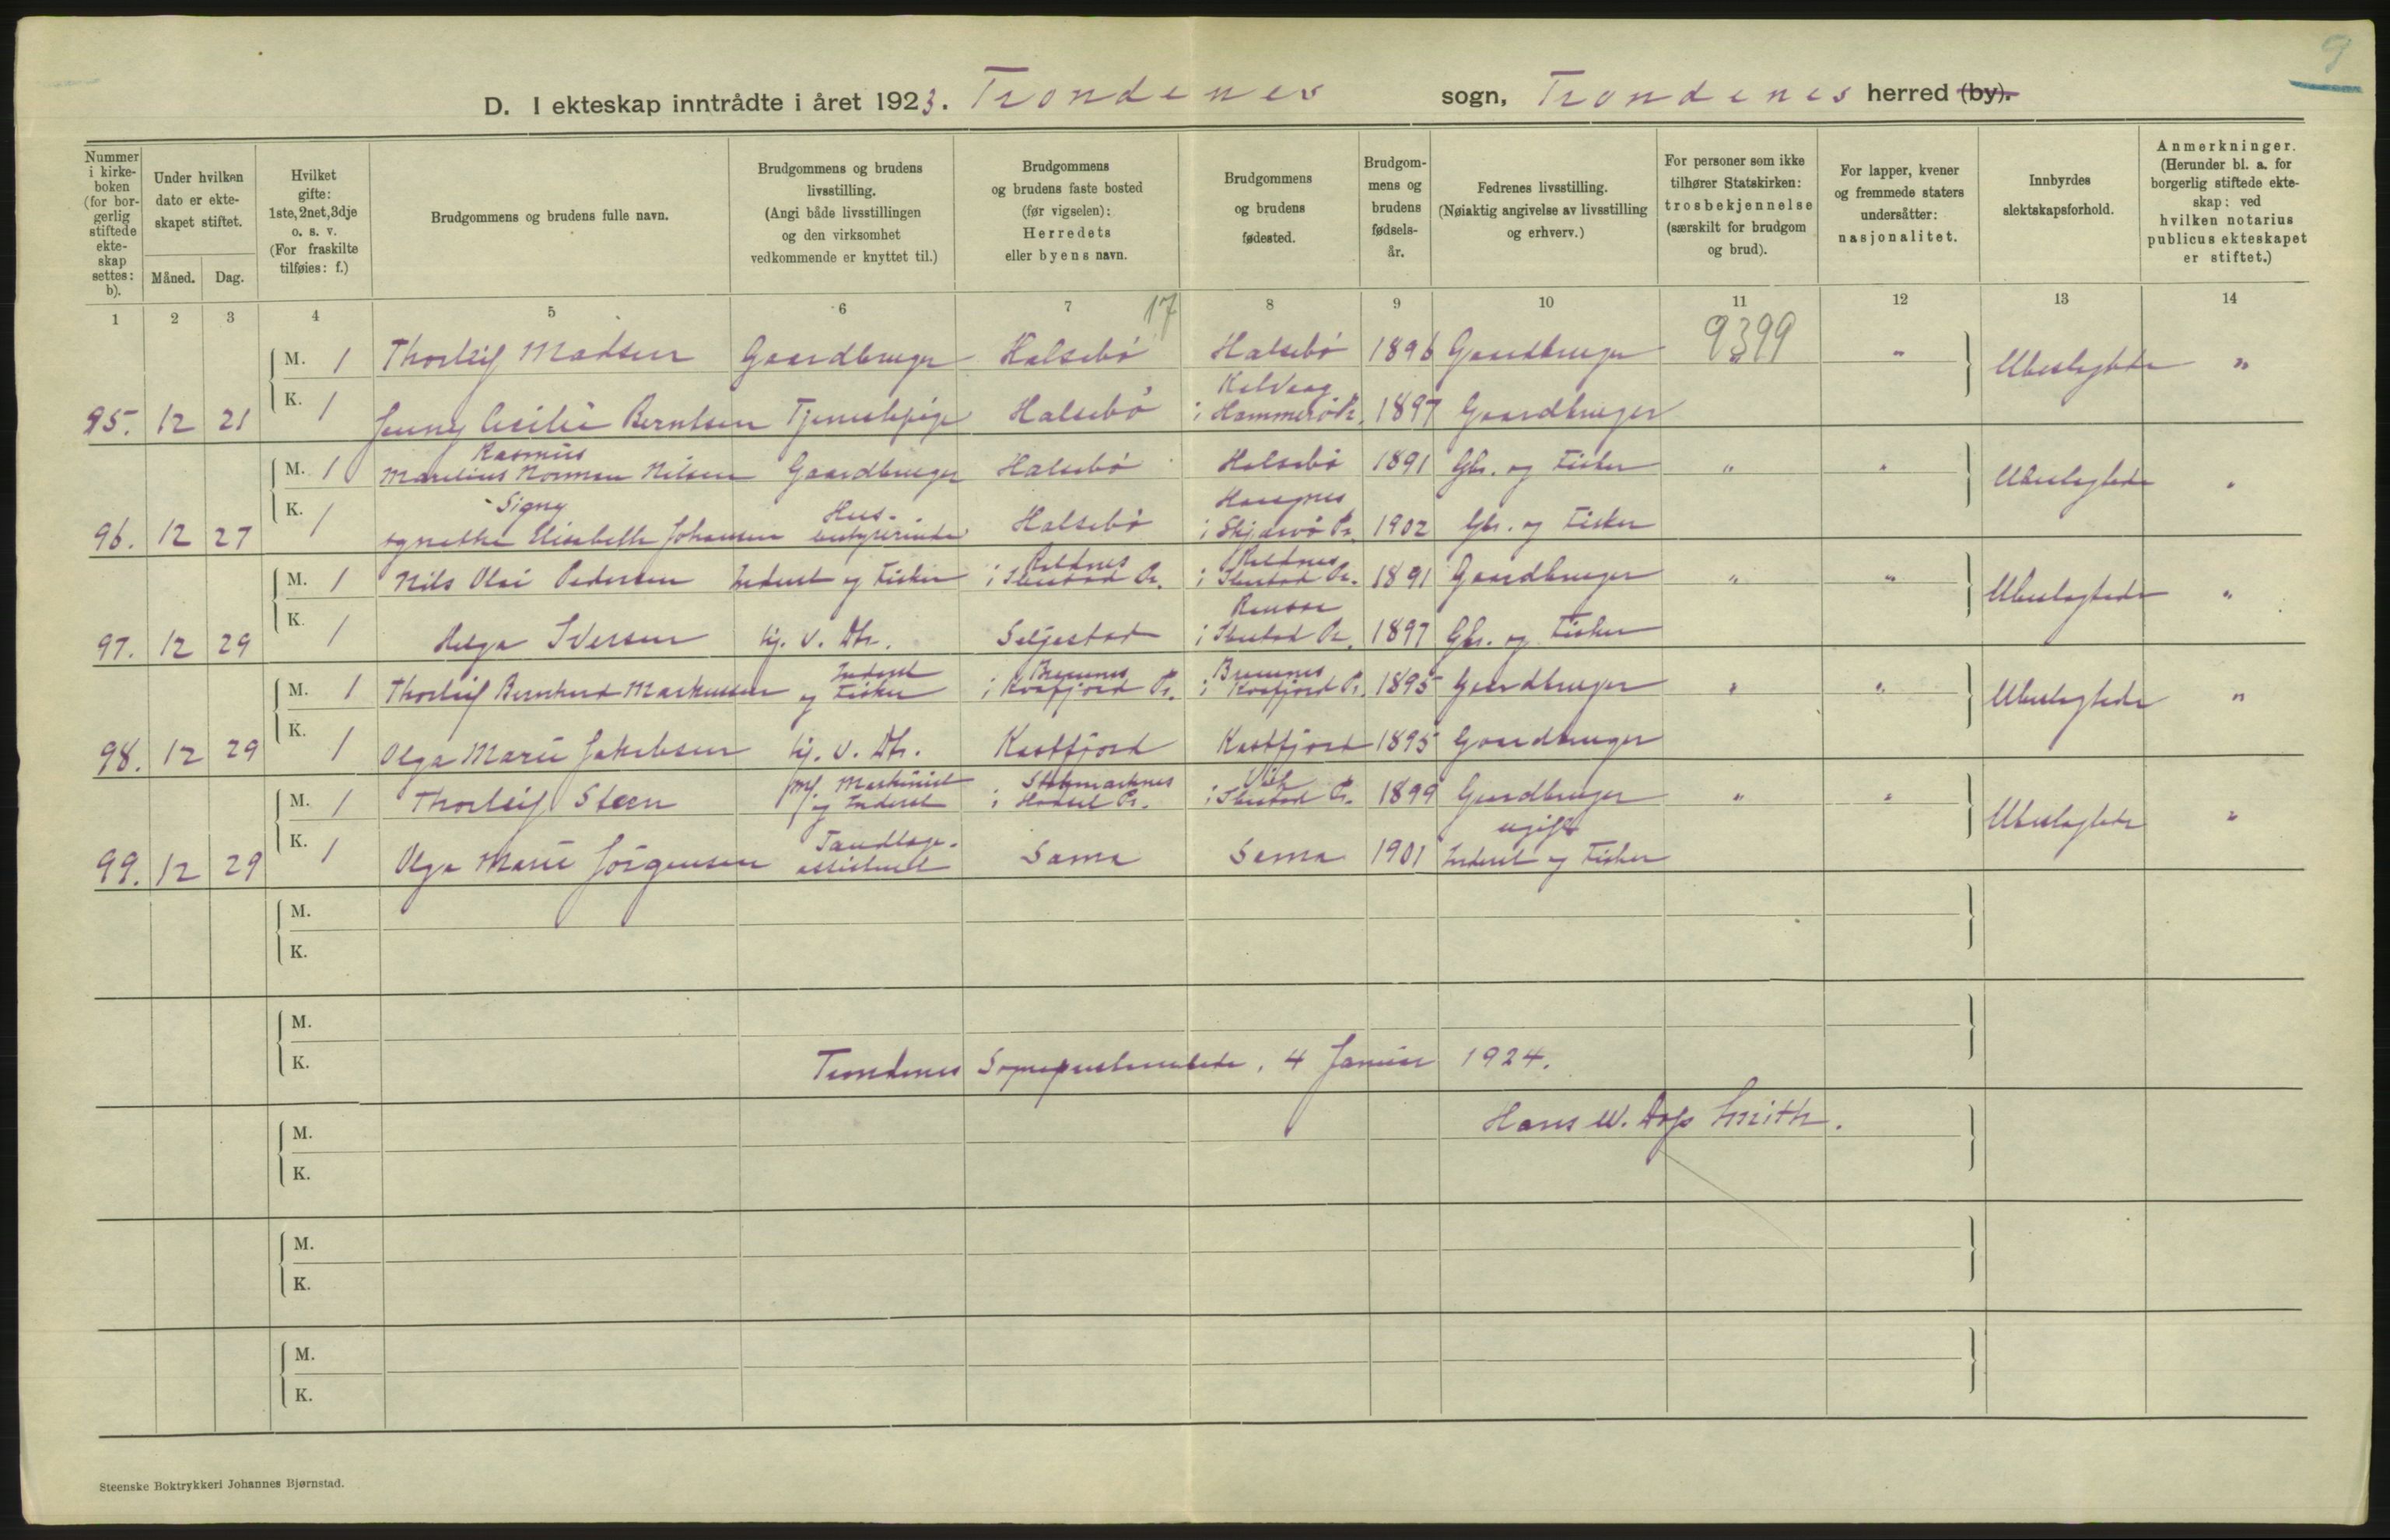 9
D. I ekteskap inntrådte i året 1923. Trondenes sogn, Trondenes herred (by).
Nummer i kirke-boken (for bor-gerlig stiftede ekte-skap settes: b).
Under hvilken dato er ekte-skapet stiftet.
Måned. Dag.
Hvilket gifte: 1ste, 2net, 3dje o. s. v. (For fraskilte tilføies: f.)
Brudgommens og brudens fulle navn.
Brudgommens og brudens livsstilling. (Angi både livsstillingen og den virksomhet vedkommende er knyttet til.)
Brudgommens og brudens faste bosted (før vigselen): Herredets eller byens navn.
Brudgommens og brudens fødested.
Brudgom-mens og brudens fødsels-år.
Fedrenes livsstilling. (Nøiaktig angivelse av livsstilling og erhverv.)
For personer som ikke tilhører Statskirken: trosbekjennelse (særskilt for brudgom og brud).
For lapper, kvener og fremmede staters undersåtter: nasjonalitet.
Innbyrdes slektskapsforhold.
Anmerkninger. (Herunder bl. a. for borgerlig stiftede ekte-skap: ved hvilken notarius publicus ekteskapet er stiftet.)
1 2 3 4 5 6 7 17 8 9 10 11 12 13 14
M. 1 Thorleif Madsen Gaardbruger Halsebö Halsebö 1896 Gaardbruger 9399 " Ubeslegtede "
95. 12 21 K. 1 Jenny Cecilie Berntsen Tjenestepige Halsebö Kalvaag i Hammerö Pr. 1897 Gaardbruger
M. 1 Rasmus Marelius Norman Nilsen Gaardbruger Halsebö Halsebö 1891 Gbr. og Fisker " " Ubeslegtede "
96. 12 27 K. 1 Signy Agnethe Elisabeth Johansen Hus-bestyrerinde Halsebö i Skjervö Pr. 1902 Gbr. og Fisker
M. 1 Nils Olai Pedersen Inderst og Fisker Rollnes i Ibestad Pr. Rollnes i Ibestad Pr. 1891 Gaardbruger " " Ubeslegtede "
97. 12 29 K. 1 Helga Iversen Hj. v. Dtr. Seljestad i Ibestad Pr. 1897 Gbr. og Fisker
M. 1 Thorleif Bernhard Markussen Inderst og Fisker Bremnes i Kvæfjord Pr. Bremnes i Kvæfjord Pr. 1895 Gaardbruger " " Ubeslegtede "
98. 12 29 K. 1 Olga Marie Jakobsen Hj. v. Dtr. Kastfjord Kastfjord 1895 Gaardbruger
M. 1 Thorleif Steen Maskinist og Inderst Stokmarknes i Hadsel Pr. i Ibestad Pr. 1899 Gaardbruger " " Ubeslegtede "
99. 12 29 K. 1 Olga Marie Jörgensen Tandlæge-assistent Sama Sama 1901 ugift Inderst og Fisker
M.
K.
M.
K.
Trondenes Sogneprestembede, 4 Januar 1924.
Hans W. Dop Smith.
M.
K.
M.
K.
M.
K.
Steenske Boktrykkeri Johannes Bjørnstad.